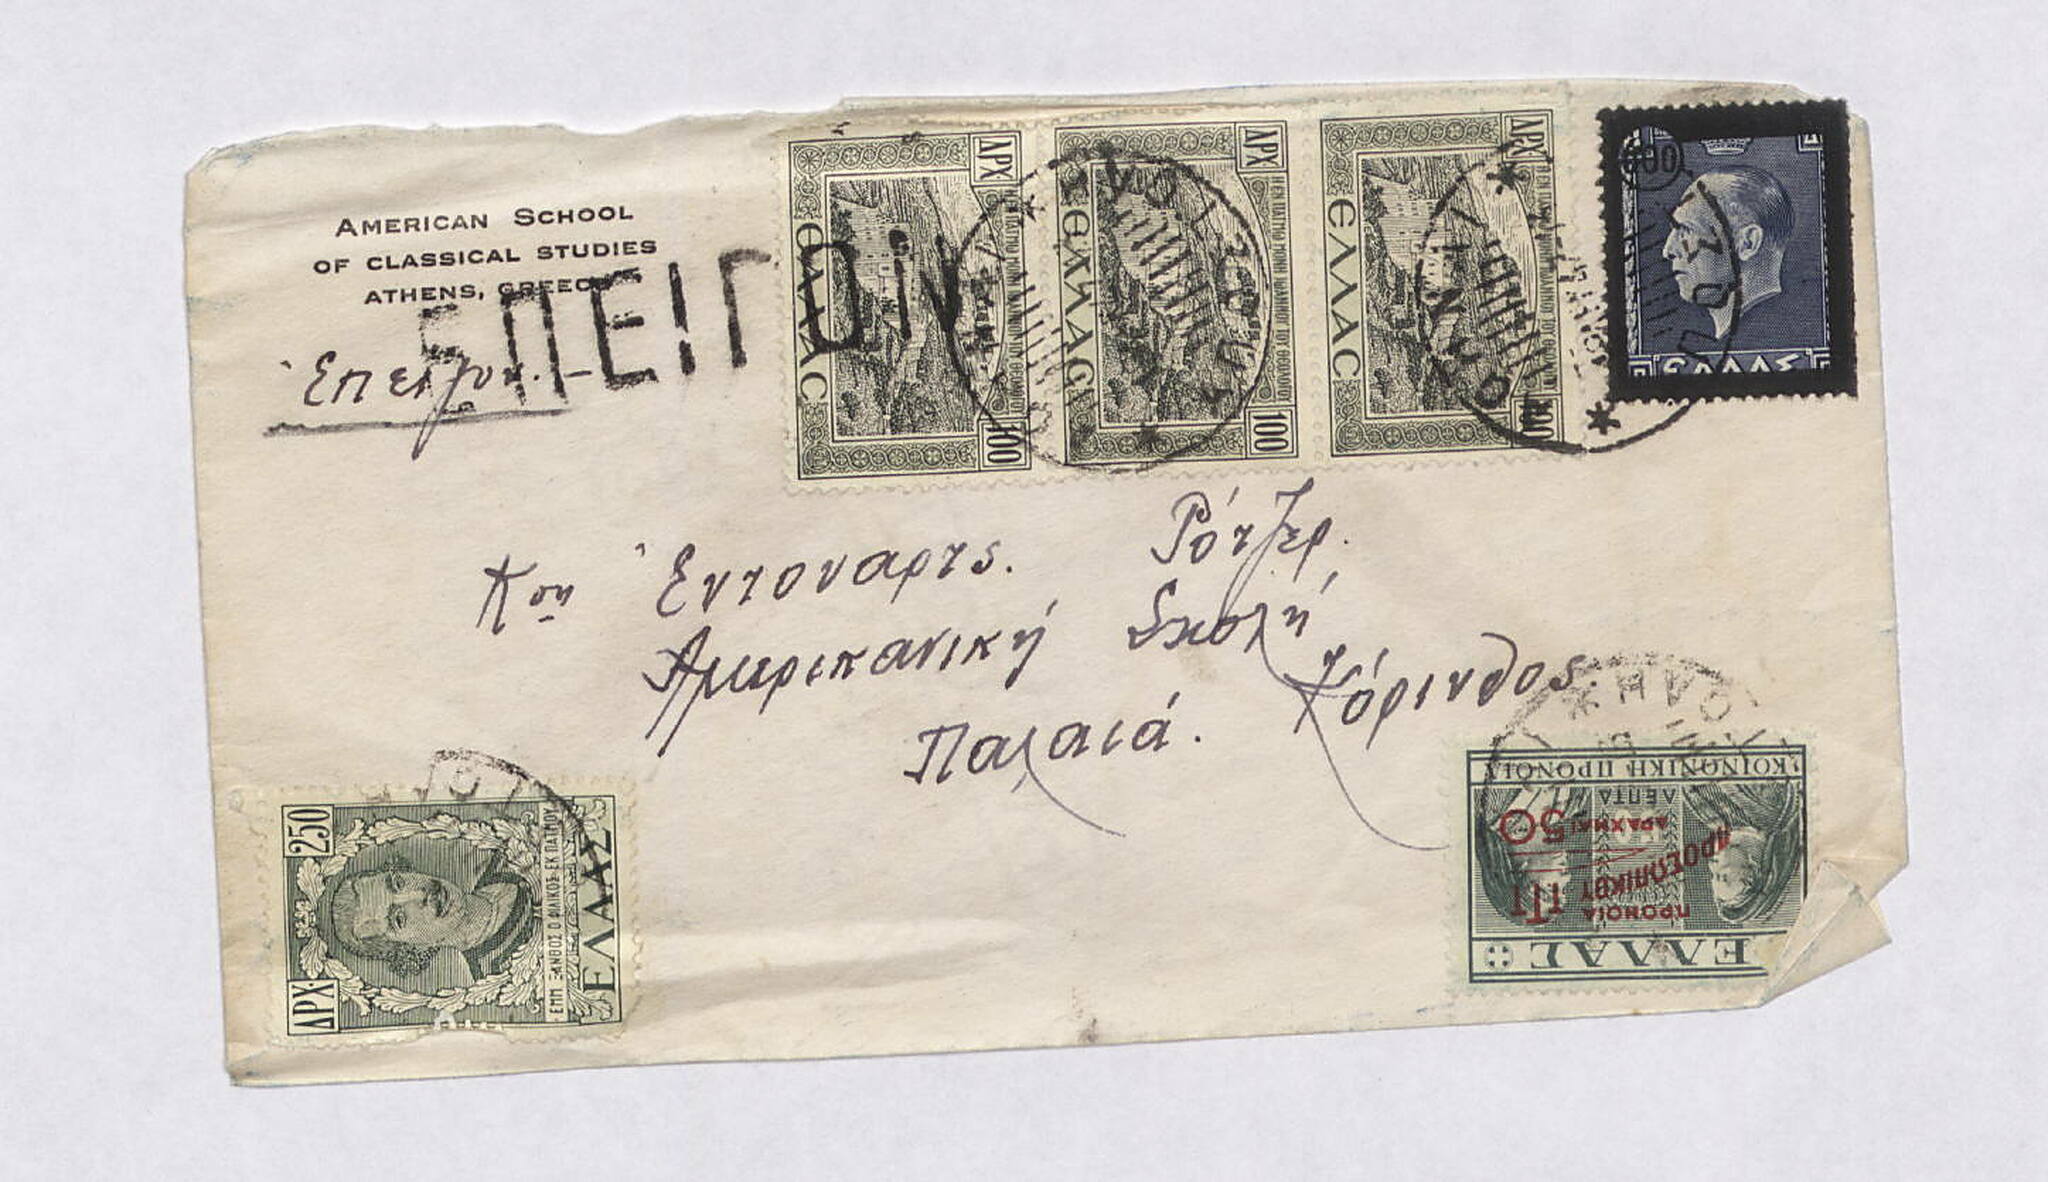 AMERICAN SCHOOL
OF CLASSICAL STUDIES
ATHENS, GREECE
ΕΠΕΙΓΟΝ
Ἐπειγον.
ΔΡΧ ΕΛΛΑΣ 100
ΔΡΧ ΕΛΛΑΣ 100
ΔΡΧ ΕΛΛΑΣ 100
ΕΛΛΑΣ
Κον Ἐντουαρτς. Ρότζερ.
Αμερικανική Σχολή
Παλαιά. Κόρινθος.
ΔΡΧ 250
ΕΜΜ. ΞΑΝΘΟΣ Ο ΦΙΛΙΚΟΣ ΕΚ ΠΑΤΜΟΥ
ΕΛΛΑΣ
ΕΛΛΑΣ
ΠΡΟΝΟΙΑ
ΠΡΟΣΩΠΙΚΟΥ
ΔΡΑΧΜΑΙ 50
ΛΕΠΤΑ
ΚΟΙΝΩΝΙΚΗ ΠΡΟΝΟΙΑ